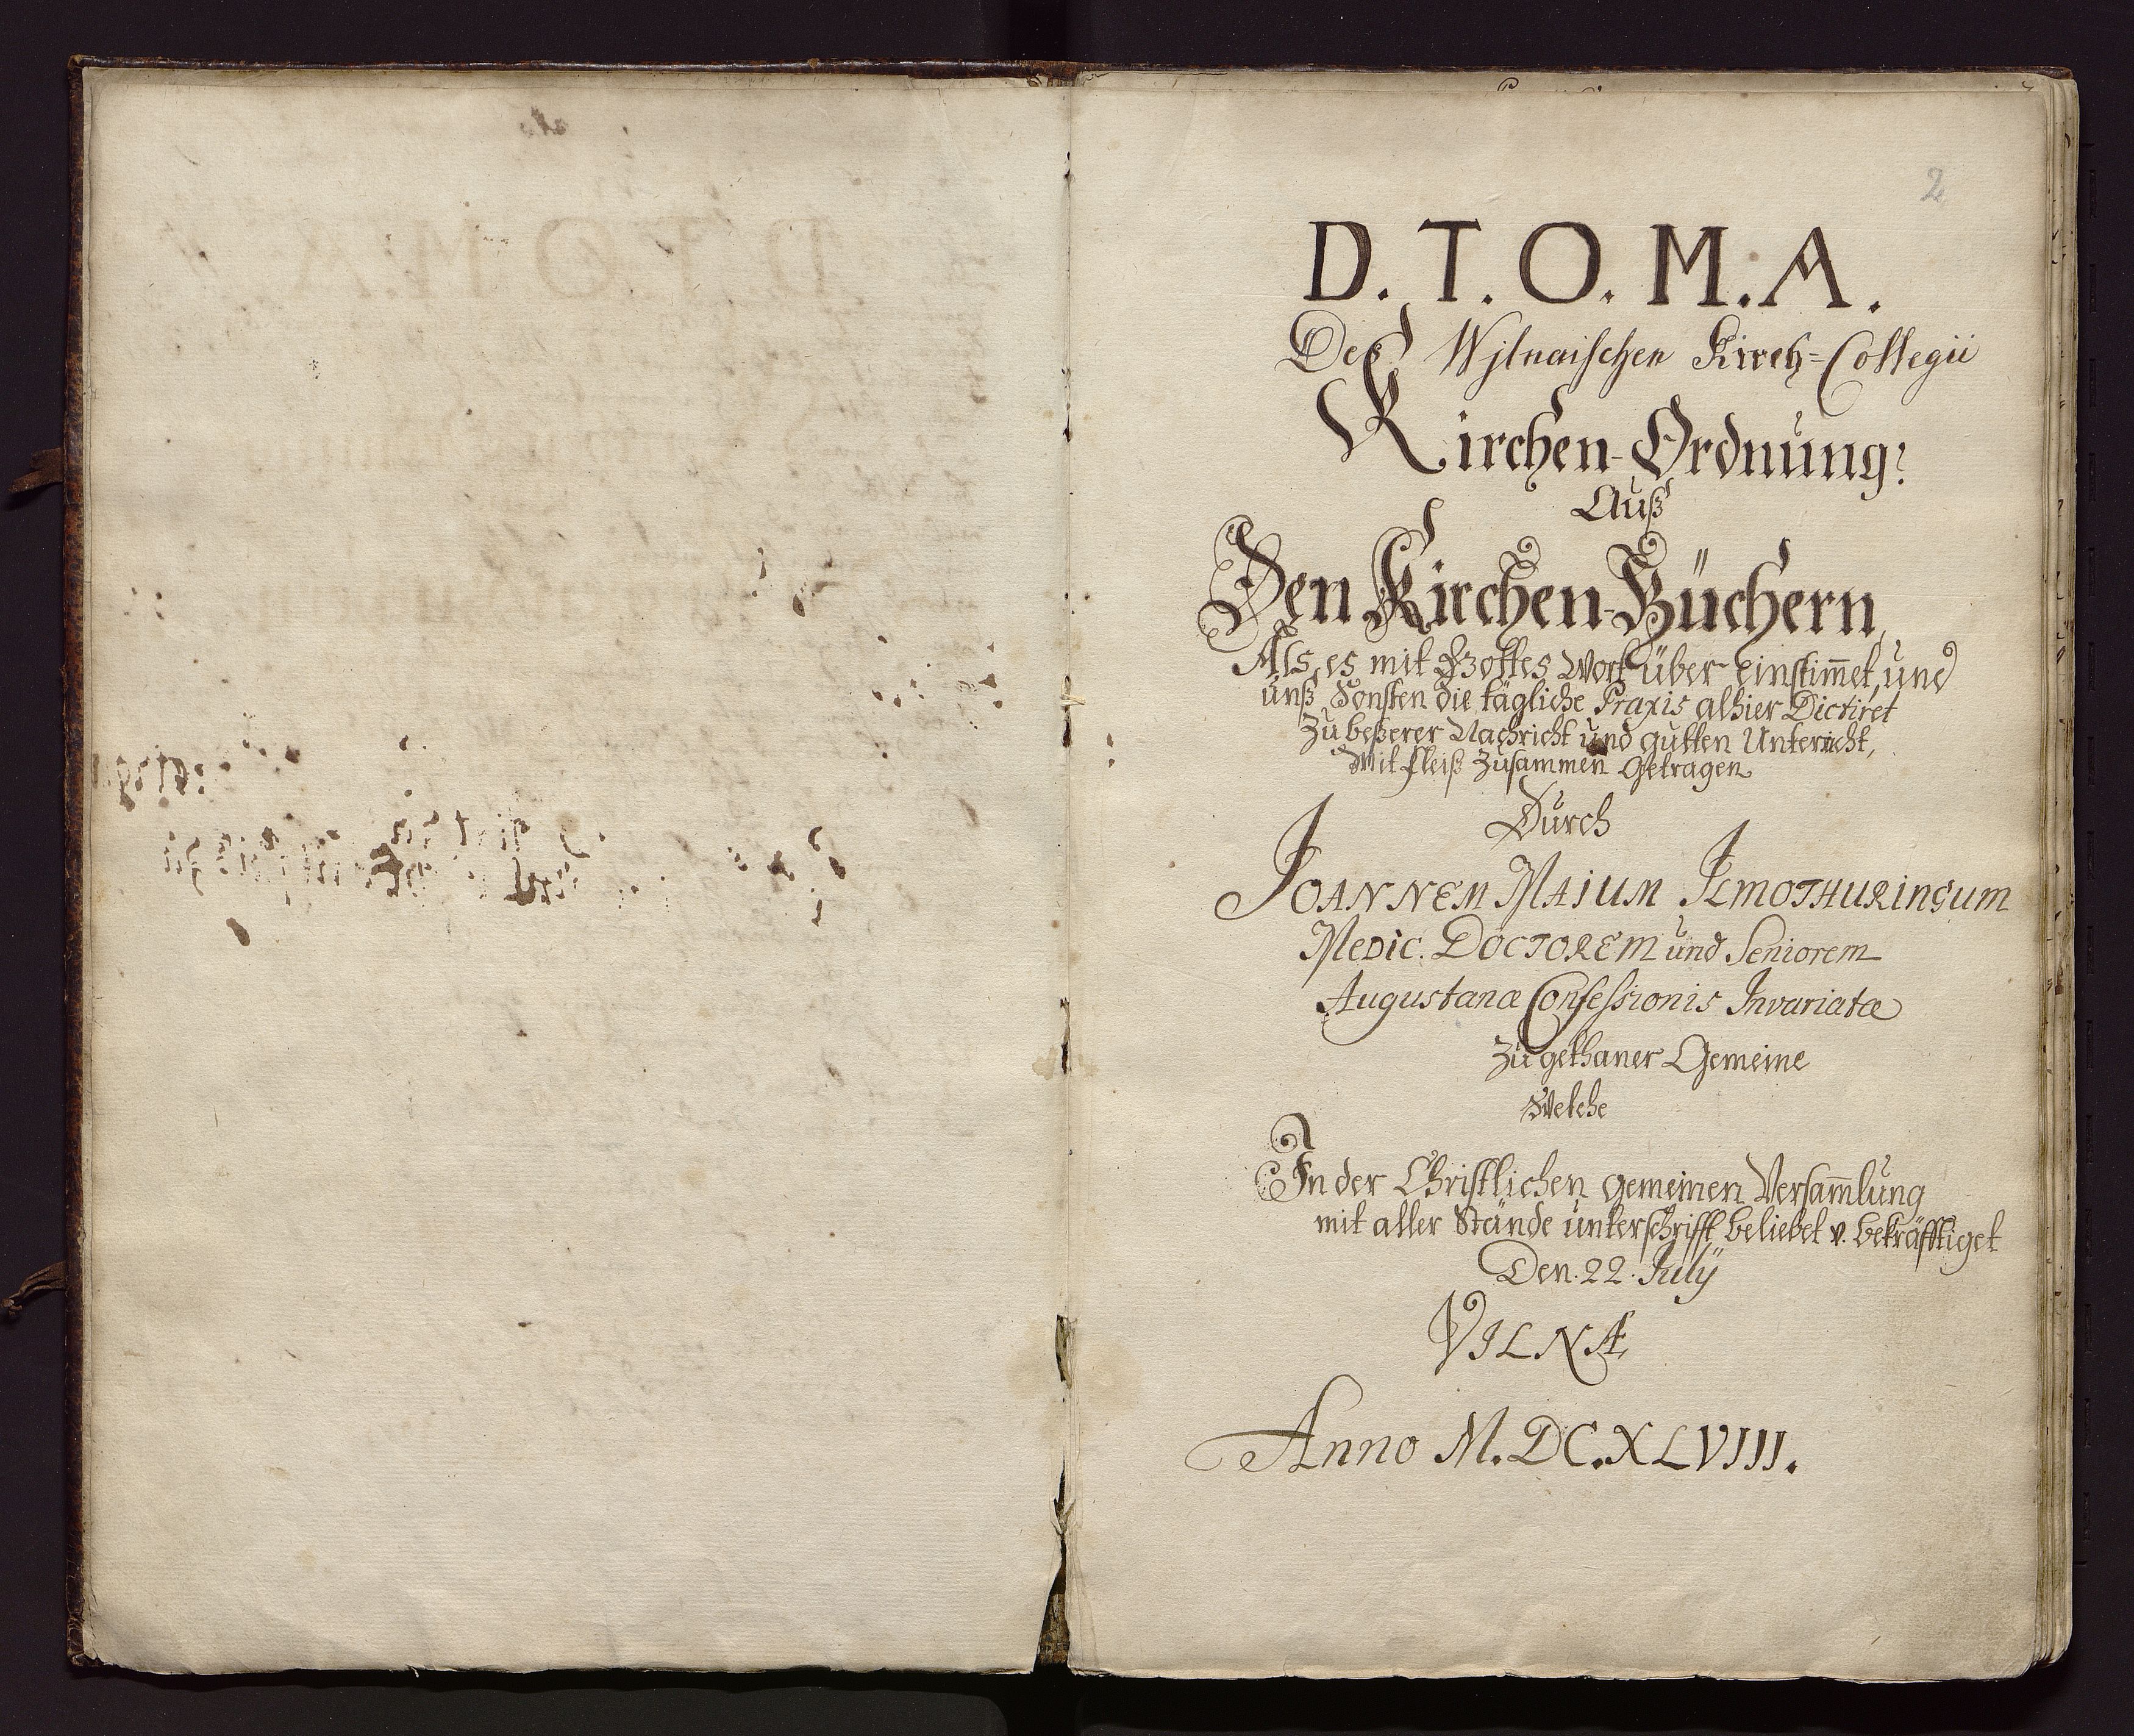 2
D. T. O. M. A.
Deß Wjlnaischen Kirch-Collegii
Kirchen-Ordnung:
Auß
Den Kirchen-Büchern,
Als es mit Gottes Wort über einstim̄et, und
unß Sonsten die tägliche Praxis alhier Dictiret
Zu beßerer Nachricht und gutten Unterricht,
Mit fleiß Zusammen Getragen
Durch
JOANNEM MAJUM JLMOTHURINGUM
MEDIC. DOCTOREM und Seniorem
Augustanæ Confessionis Invariatæ
Zugethaner Gemeine
Welche
In der Christlichen gemeinen Versam̄lung
mit aller Stände unterschrifft beliebet v. bekräfftiget
Den. 22. July
VILNÆ
Anno M. DC. XLVIII.